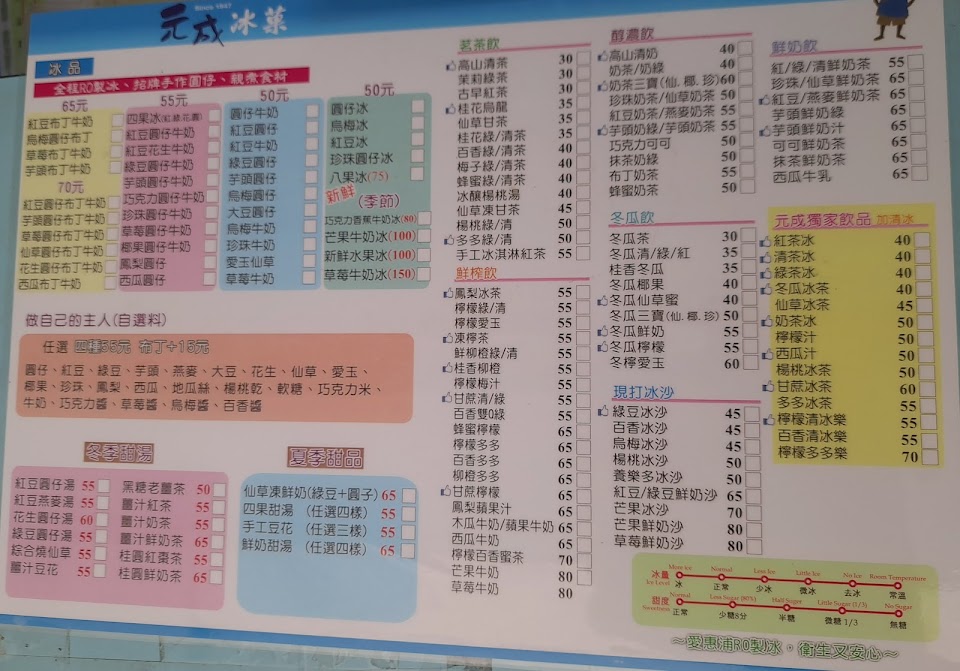 Since 1947
元成冰菓
冰品
全程RO製冰、招牌手作圓仔、親煮食材
65元
紅豆布丁牛奶
烏梅圓仔布丁
草莓布丁牛奶
芋頭布丁牛奶
70元
紅豆圓仔布丁牛奶
芋頭圓仔布丁牛奶
草莓圓仔布丁牛奶
仙草圓仔布丁牛奶
花生圓仔布丁牛奶
西瓜布丁牛奶
55元
四果冰(紅.綠.花.圓)
紅豆圓仔牛奶
紅豆花生牛奶
綠豆圓仔牛奶
芋頭圓仔牛奶
巧克力圓仔牛奶
珍珠圓仔牛奶
草莓圓仔牛奶
椰果圓仔牛奶
鳳梨圓仔
西瓜圓仔
50元
圓仔牛奶
紅豆圓仔
紅豆牛奶
綠豆圓仔
芋頭圓仔
烏梅圓仔
大豆圓仔
烏梅牛奶
珍珠牛奶
愛玉仙草
草莓牛奶
50元
圓仔冰
烏梅冰
紅豆冰
珍珠圓仔冰
八果冰(75)
新鮮(季節)
巧克力香蕉牛奶冰(80)
芒果牛奶冰(100)
新鮮水果冰(100)
草莓牛奶冰(150)
做自己的主人(自選料)
任選 四種55元 布丁+15元
圓仔、紅豆、綠豆、芋頭、燕麥、大豆、花生、仙草、愛玉、
椰果、珍珠、鳳梨、西瓜、地瓜絲、楊桃乾、軟糖、巧克力米、
牛奶、巧克力醬、草莓醬、烏梅醬、百香醬
冬季甜湯
紅豆圓仔湯 55
紅豆燕麥湯 55
花生圓仔湯 60
綠豆圓仔湯 55
綜合燒仙草 55
薑汁豆花 55
黑糖老薑茶 50
薑汁紅茶 55
薑汁奶茶 55
薑汁鮮奶茶 65
桂圓紅棗茶 55
桂圓鮮奶茶 65
夏季甜品
仙草凍鮮奶(綠豆+圓子) 65
四果甜湯 (任選四樣) 55
手工豆花 (任選三樣) 55
鮮奶甜湯 (任選四樣) 65
茗茶飲
高山清茶 30
茉莉綠茶 30
古早紅茶 30
桂花烏龍 35
仙草甘茶 35
桂花綠/清茶 35
百香綠/清茶 40
梅子綠/清茶 40
蜂蜜綠/清茶 40
冰釀楊桃湯 40
仙草凍甘茶 45
楊桃綠/清 50
多多綠/清 50
手工冰淇淋紅茶 55
鮮榨飲
鳳梨冰茶 55
檸檬綠/清 55
檸檬愛玉 55
凍檸茶 55
鮮柳橙綠/清 55
桂香柳橙 55
檸檬梅汁 55
甘蔗清/綠 55
百香雙Q綠 55
蜂蜜檸檬 65
檸檬多多 65
百香多多 65
柳橙多多 65
甘蔗檸檬 65
鳳梨蘋果汁 65
木瓜牛奶/蘋果牛奶 65
西瓜牛奶 65
檸檬百香蜜茶 70
芒果牛奶 80
草莓牛奶 80
醇濃飲
高山清奶 40
奶茶/奶綠 40
奶茶三寶(仙. 椰. 珍) 60
珍珠奶茶/仙草奶茶 50
紅豆奶茶/燕麥奶茶 55
芋頭奶綠/芋頭奶茶 55
巧克力可可 50
抹茶奶綠 50
布丁奶茶 55
蜂蜜奶茶 50
冬瓜飲
冬瓜茶 30
冬瓜清/綠/紅 35
桂香冬瓜 35
冬瓜椰果 40
冬瓜仙草蜜 40
冬瓜三寶(仙. 椰. 珍) 50
冬瓜鮮奶 55
冬瓜檸檬 55
冬檸愛玉 60
現打冰沙
綠豆冰沙 45
百香冰沙 45
烏梅冰沙 45
楊桃冰沙 50
養樂多冰沙 50
紅豆/綠豆鮮奶沙 65
芒果冰沙 70
芒果鮮奶沙 80
草莓鮮奶沙 80
鮮奶飲
紅/綠/清鮮奶茶 55
珍珠/仙草鮮奶茶 65
紅豆/燕麥鮮奶茶 65
芋頭鮮奶綠 65
芋頭鮮奶汁 65
可可鮮奶茶 65
抹茶鮮奶茶 65
西瓜牛乳 65
元成獨家飲品 加清冰
紅茶冰 40
清茶冰 40
綠茶冰 40
冬瓜冰茶 40
仙草冰茶 45
奶茶冰 50
檸檬汁 50
西瓜汁 50
楊桃冰茶 50
甘蔗冰茶 60
多多冰茶 55
檸檬清冰樂 55
百香清冰樂 55
檸檬多多樂 70
冰量 Ice Level
More Ice Normal Less Ice Little Ice No Ice Room Temperature
冰 正常 少冰 微冰 去冰 常溫
甜度 Sweetness
Normal Less Sugar (80%) Half Sugar Little Sugar (1/3) No Sugar
正常 少糖8分 半糖 微糖 1/3 無糖
～愛惠浦RO製冰，衛生又安心～